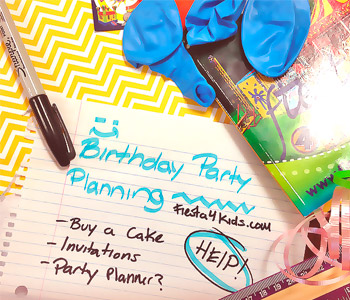 Birthday Party
Planning
Fiesta4Kids.com
- Buy a Cake
- Invitations
- Party Planner?
HELP!
Sharpie